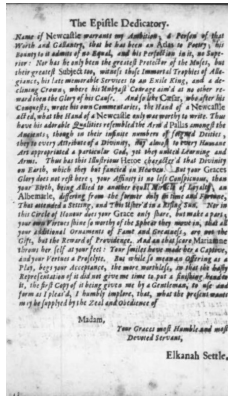 The Epistle Dedicatory.
Name of Newcastle warrants my Ambition, a Person of that
Worth and Gallantry, that he had been an Atlas to Poetry, his
Bounty to it admits of no Equal, and his Perfection in it, no Supe-
rior: Nor has he only been the greatest Protector of the Muses, but
their greatest Subject too, witness those Immortal Trophies of Alle-
giance, his late memorable Services to an Exile King, and a de-
clining Crown, where his Unbyast Courage aim'd at no other re-
ward then the Glory of his Cause. And so like Cæsar, who after his
Conquests, wrote his own Commentaries, the Hand of a Newcastle
acted, what the Hand of a Newcastle only was worthy to write. Thus
have his adorable Qualities resembled the Arm'd Pallas amongst the
Ancients, though in their infinite numbers of feigned Deities,
they to every Attribute of a Divinity, nay almost to every Humane
Art appropriated a particular God, yet they united Learning and
Arms. Thus has this Illustrious Heroe character'd that Divinity
on Earth, which they but fancied in Heaven. But your Graces
Glory does not rest here, your Affinity is no less Conspicuous, then
your Birth, being Allied to another equal of Loyalty, an
Albemarle, differing from the former only in Time and Fortune,
That attended a Setting, and This Usher'd in a Rising Sun. Nor in
this Circle of Honour does your Grace only share, but make a part,
your own Vertues shine so worthy of the Sphear they move in, that all
your additional Ornaments of Fame and Greatness, are not the
Gift, but the Reward of Providence. And on that score Marianne
throws her self at your feet: Your smiles have made her a Captive,
and your Vertues a Proselyte. But while so mean an Offering as a
Play, begs your Acceptance, the more worthless, in that the hasty
Representation of it did not give me time to put a finishing hand to
it, the first Copy of it being given me by a Gentleman, to use and
form as I pleas'd, I humbly implore, that, what the present wants
may be supplyed by the Zeal and obedience of
Madam,
Your Graces most Humble and most
Devoted Servant,
Elkanah Settle,